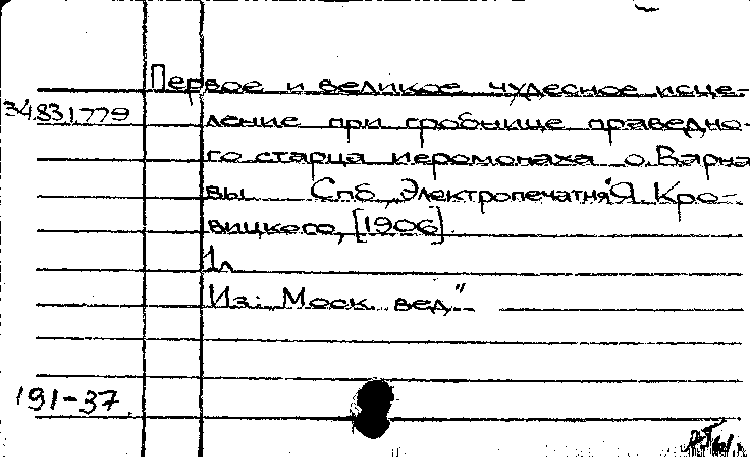 Первое и великое чудесное исце-
34.831.779
ление при гробнице праведно-
го старца иеромонаха о. Варна
вы Спб, Электропечатня Я. Кро-
вицкого, [1906]
1л
Из: Моск. вед."
191-37